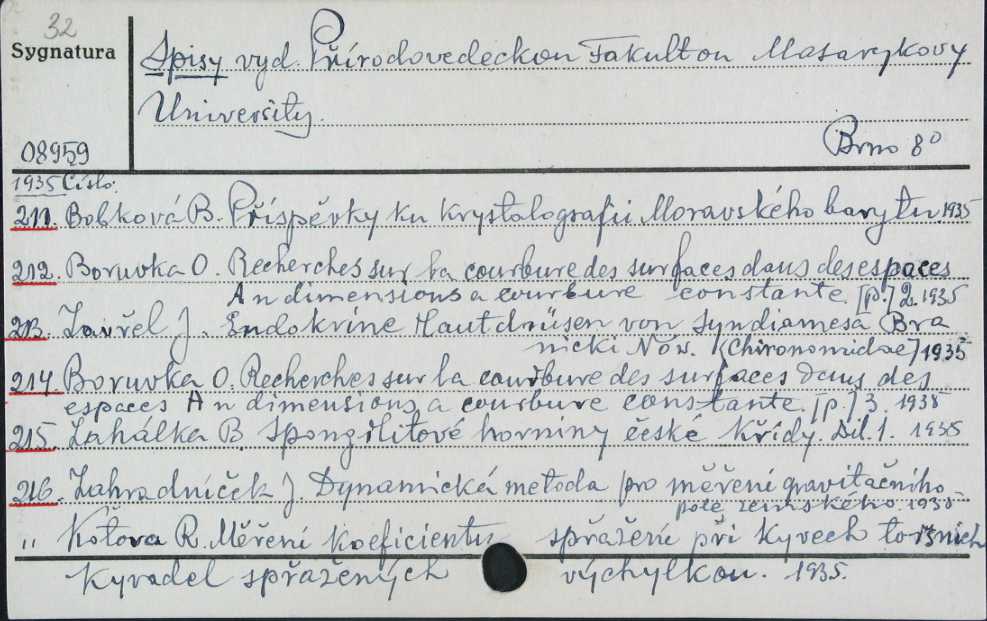 32
Sygnatura
Spisy vyd. Přírodovedeckou Fakultou Masarykovy
University.
08959
Brno 8°
1935 Číslo.
211. Bobková B. Příspěvky ku krystalografii Moravského barytu. 1935
212. Boruvka O. Recherches sur la courbure des surfaces dans des espaces
A n dimensions a courbure constante. [p.] 2. 1935
213. Zavřel J. Endokrine Hautdrüsen von Syndiamesa Bra
nicki Now. [Chironomidae] 1935
214. Boruvka O. Recherches sur la courbure des surfaces dans des
espaces A n dimensions a courbure constante. [p.] 3. 1935
215. Zahálka B Spongilitové horniny české křídy. Díl. 1. 1935
216. Zahradníček J. Dynamická metoda pro měření gravitačního
pole zemského. 1935
" Košova R. Měření koeficientu spřažení při kyvech torsních
kyvadel spřažených výchylkou. 1935.